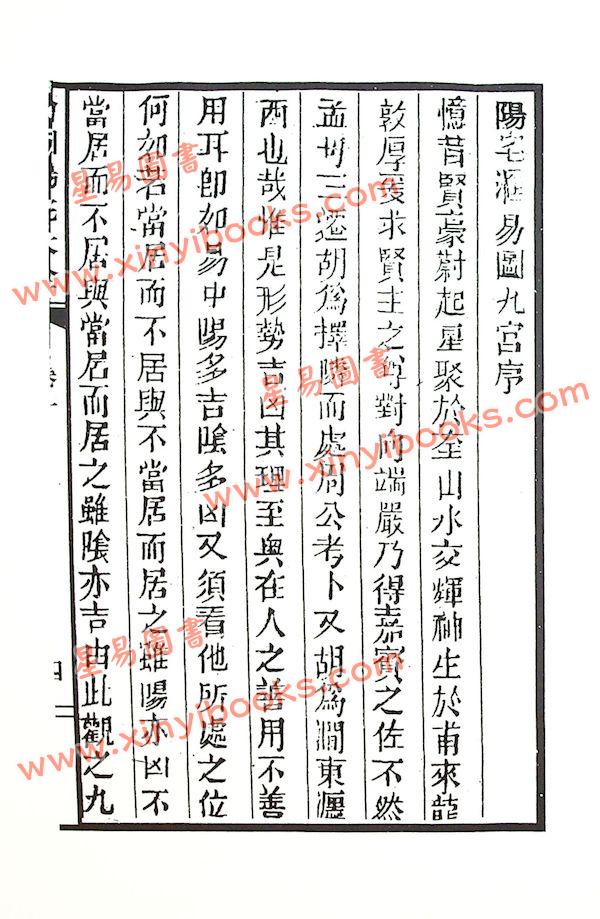 陽宅河易圖九宫序
憶昔賢豪蔚起星聚於奎山水交輝神生於甫來龍
敦厚爰求賢主之對向端嚴乃得嘉賓之佐不然
孟母三遷胡爲擇隣而處周公考卜又胡爲澗東瀍
西也哉惟是形勢吉凶其理至奥在人之善用不善
用耳卽如易中陽多吉陰多凶又須看他所處之位
何如若當居而不居與不當居而居之雖陽亦凶不
當居而不居與當居而居之雖陰亦吉由此觀之九
四
星易圖書
www.xinyibooks.com
星易圖書
www.xinyibooks.com
星易圖書
www.xinyibooks.com
星易圖書
www.xinyibooks.com